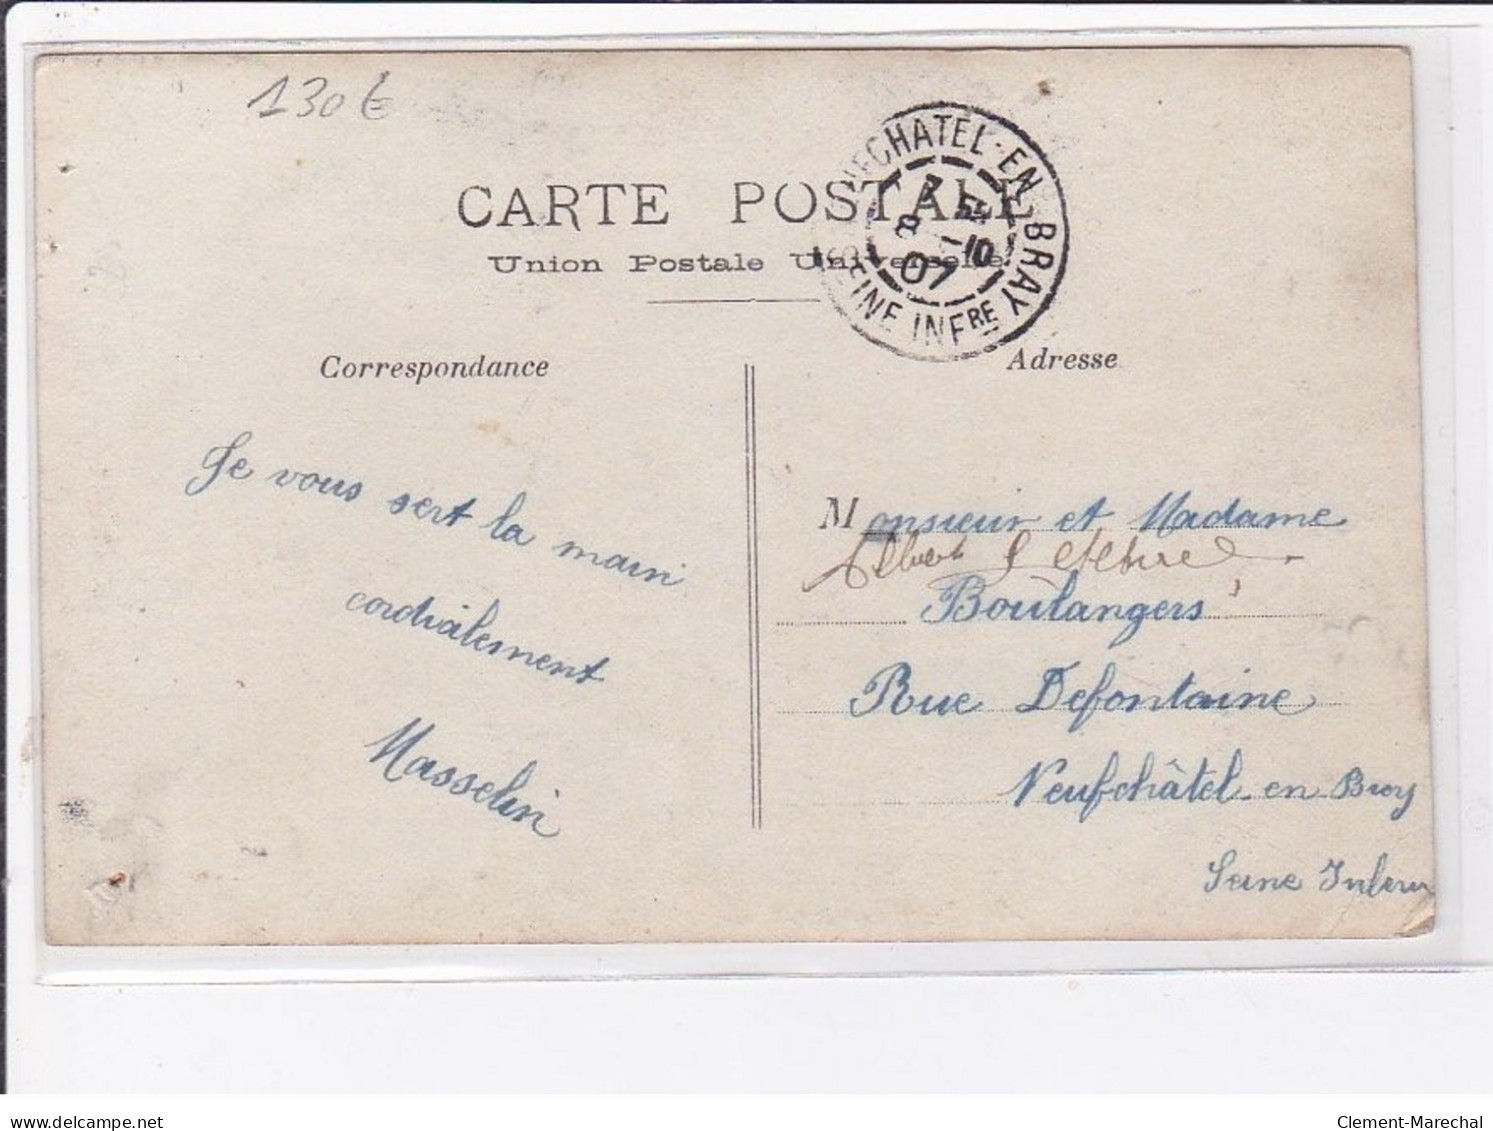 130€
CARTE POSTALE
Union Postale Universelle
CHATEL-EN-BRAY
7 55
8 -10
07
SEINE INFRE
Correspondance
Adresse
Je vous sert la main
cordialement
Masselin
Monsieur et Madame
Albert Lefebvre
Boulangers
Rue Defontaine
Neufchâtel en Bray
Seine Infer
delcampe.net
Clement-Marechal